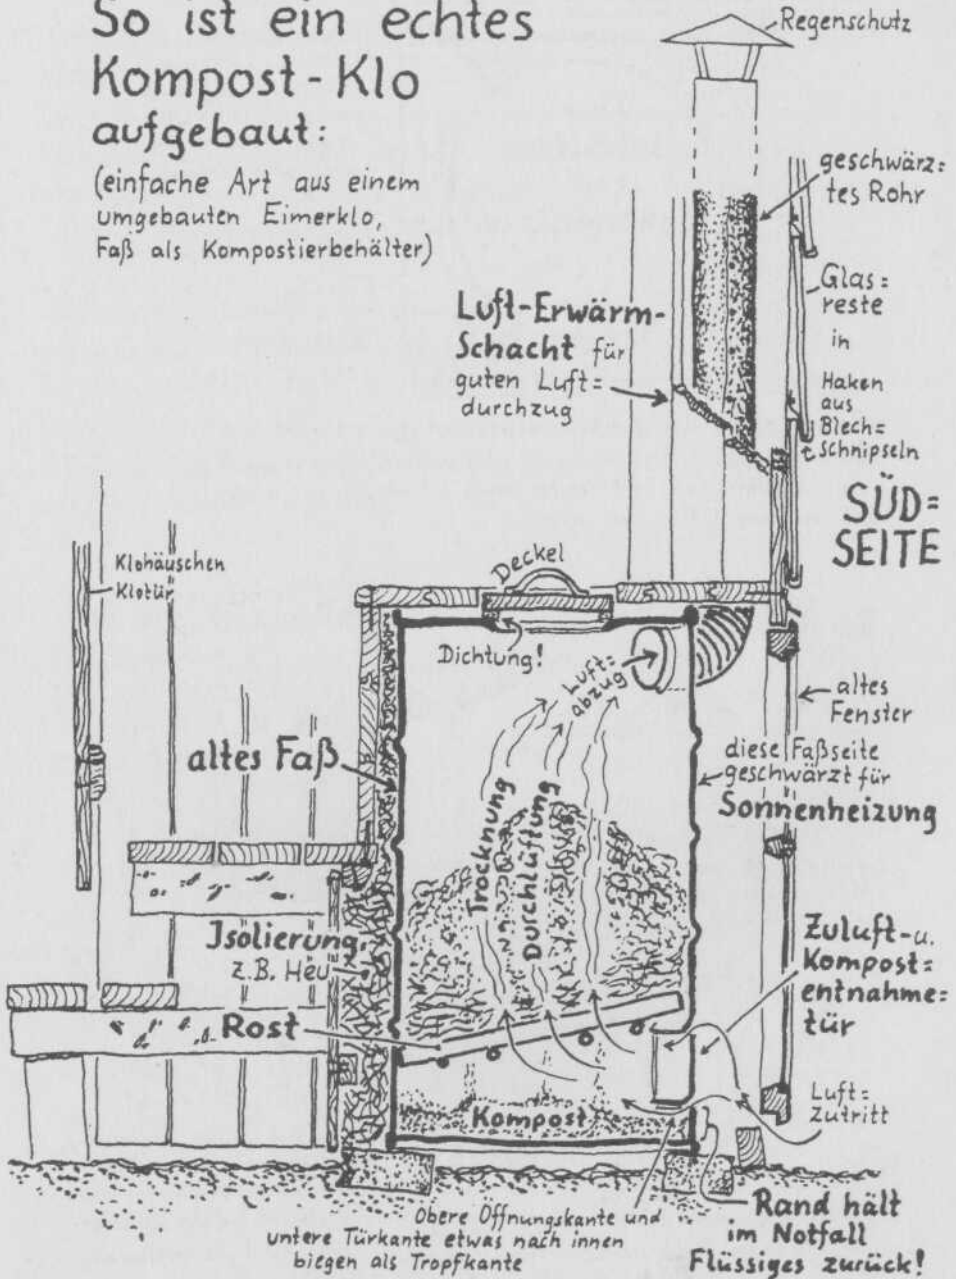 So ist ein echtes
Kompost-Klo
aufgebaut:
(einfache Art aus einem
umgebauten Eimerklo,
Faß als Kompostierbehälter)
Regenschutz
geschwärz=
tes Rohr
Glas=
reste
in
Haken
aus
Blech=
schnipseln
Luft-Erwärm-
Schacht für
guten Luft=
durchzug
SÜD=
SEITE
Klohäuschen
Klotür
Deckel
Dichtung!
Luft=
abzug
altes
Fenster
altes Faß
diese Faßseite
geschwärzt für
Sonnenheizung
Trocknung
Durchlüftung
Isolierung
z.B. Heu
Zuluft-u.
Kompost=
entnahme=
tür
Rost
Kompost
Luft=
zutritt
Obere Öffnungskante und
untere Türkante etwas nach innen
biegen als Tropfkante
Rand hält
im Notfall
Flüssiges zurück!